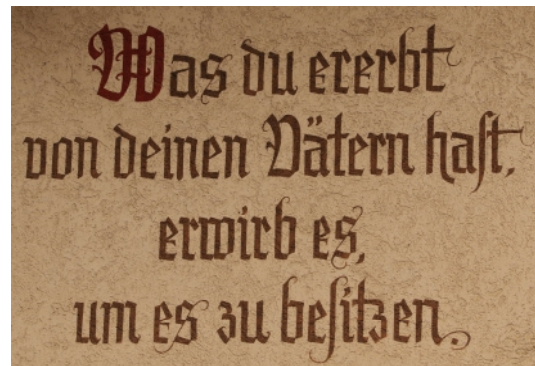 Was du ererbt
von deinen Vätern haſt,
erwirb es,
um es zu beſitzen.